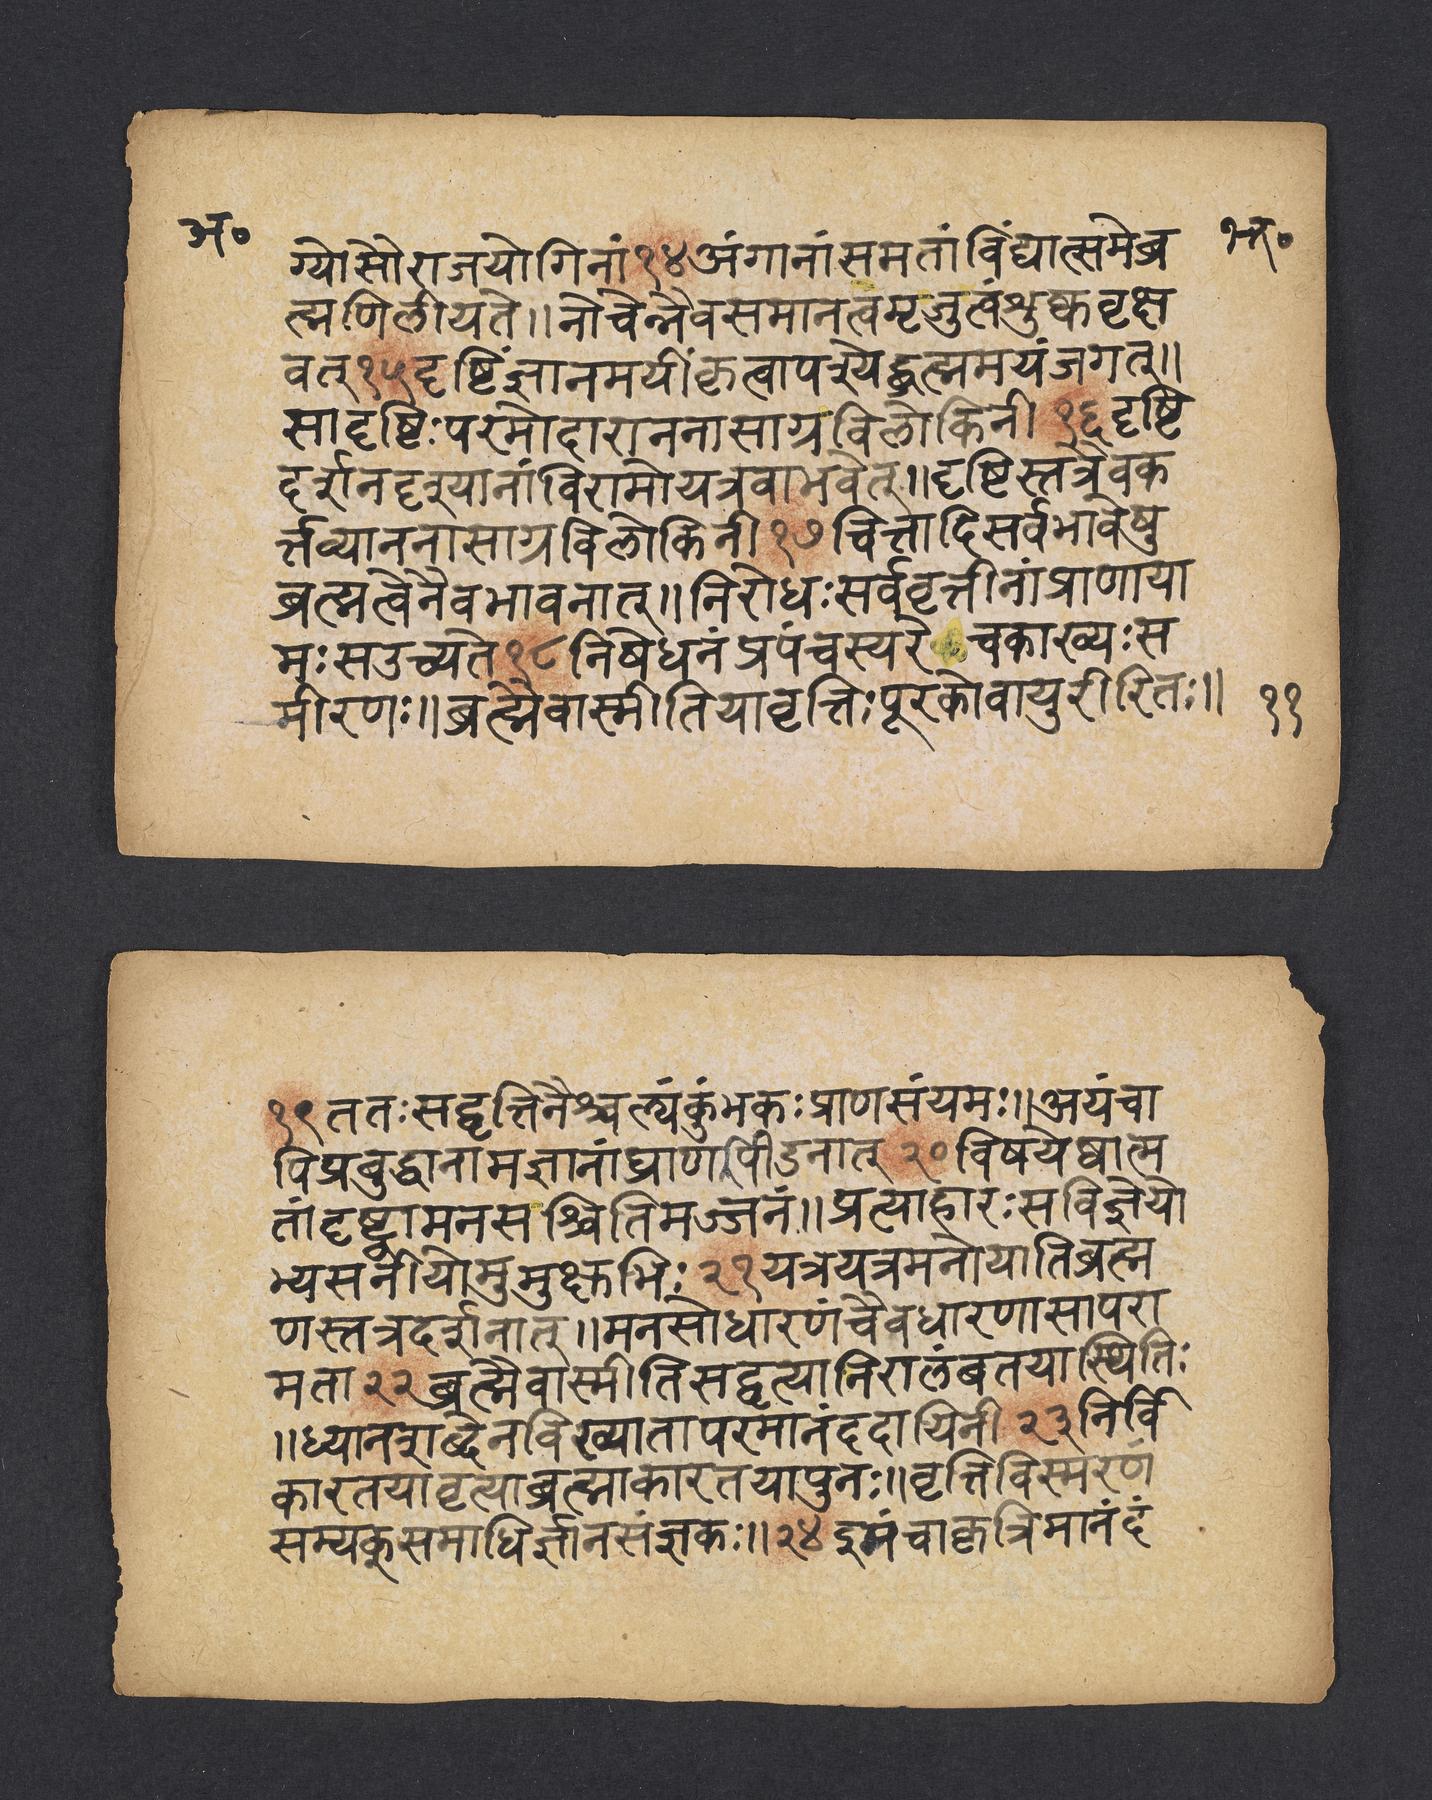 अ०
ग्योसौराजयोगिनां१४अंगानांसमतांविंद्यात्समेब्र
अ०
ह्मणिलीयते॥नोचेन्नैवसमानत्वमृजुत्वंशुष्कवृक्ष
वत्१५दृष्टिंज्ञानमयींकृत्वापश्येद्ब्रह्ममयंजगत्॥
सादृष्टिःपरमोदारानननासाग्रविलोकिनी१६दृष्टि
दर्शनदृश्यानांविरामोयत्रवाभवेत्॥दृष्टिस्तत्रैवक
र्त्तव्यानननासाग्रविलोकिनी१७चित्तादिसर्वभावेषु
ब्रह्मत्वेनैवभावनात्॥निरोधःसर्ववृत्तीनांप्राणाया
मःसउच्यते१८निषेधनंप्रपंचस्यरेचकाख्यःस
मीरणः॥ब्रह्मैवास्मीतियावृत्तिःपूरकोवायुरीरितः॥
११
१९ततःसद्वृत्तिनैश्चल्यंकुंभकःप्राणसंयमः॥अयंचा
पिप्रबुद्धानामज्ञानांघ्राणपीडनात्२०विषयेष्वात्म
तांदृष्ट्वामनसश्चितिमज्जनं॥प्रत्याहारःसविज्ञेयो
भ्यसनीयोमुमुक्षुभिः२१यत्रयत्रमनोयातिब्रह्म
णस्तत्रदर्शनात्॥मनसोधारणंचैवधारणासापरा
मता२२ब्रह्मैवास्मीतिसद्वृत्यानिरालंबतयास्थितिः
॥ध्यानशब्देनविख्यातापरमानंददायिनी२३निर्वि
कारतयावृत्याब्रह्माकारतयापुनः॥वृत्तिविस्मरणं
सम्यक्समाधिर्ज्ञानसंज्ञकः॥२४इमंचाकृत्रिमानंदं